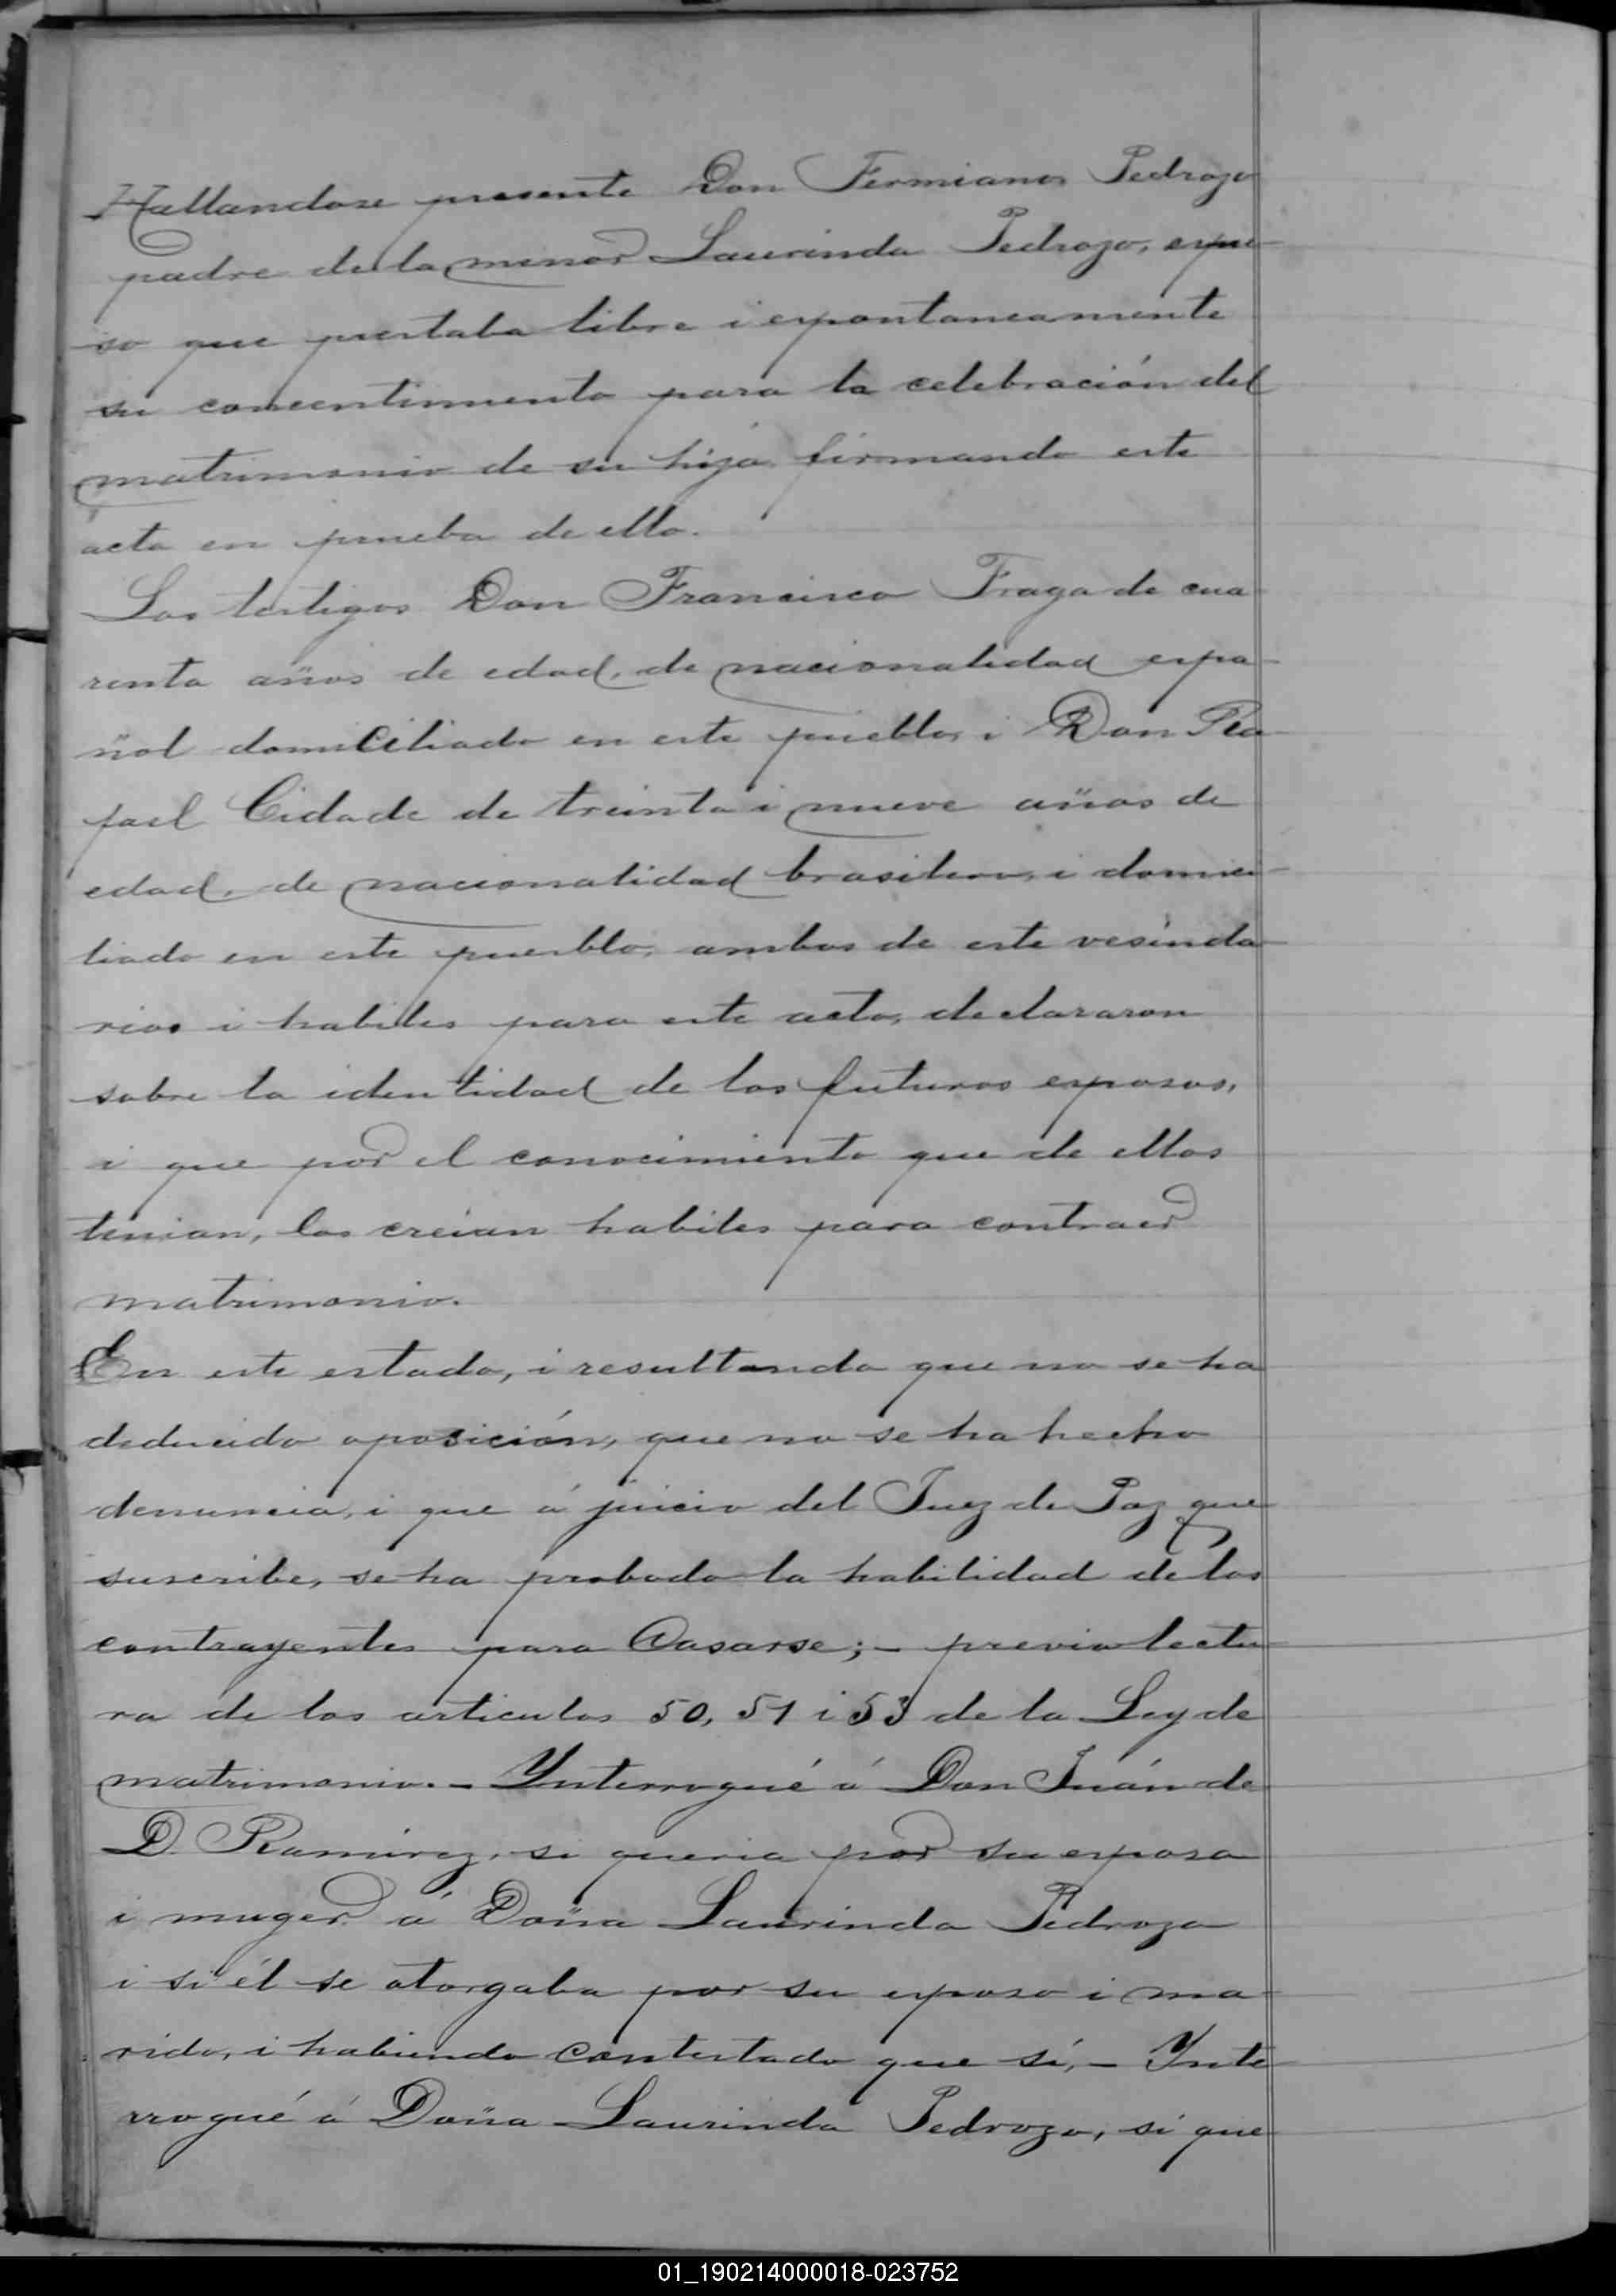 Hallandose presente Don Fermiano Pedrozo
padre de la menor Laurinda Pedrozo, expu-
so que prestaba libre i espontaneamente
su concentimiento para la celebración del
matrimonio de su hija firmando este
acta en prueba de ello.
Los testigos Don Francisco Fraga de cua
renta años de edad, de nacionalidad espa-
ñol domiciliado en este pueblo, i Don Ra-
fael Cidade de treinta i nueve años de
edad, de nacionalidad brasilero, i domici-
liado en este pueblo, ambos de este vesinda-
rios i habiles para este acto, declararon
sobre la identidad de los futuros esposos,
i que por el conocimiento que de ellos
tenian, los creian habiles para contraer
matrimonio.
En este estado, i resultando que no se ha
deducido oposición, que no se ha hecho
denuncia, i que á juicio del Juez de Paz que
suscribe, se ha probado la habilidad de los
contrayentes para Casarse; - previa lectu-
ra de los articulos 50, 51 i 53 de la Ley de
matrimonio. - Ynterrogué á Don Juán de
D. Ramirez, si queria por su esposa
i muger á Doña Laurinda Pedrozo
i si él se otorgaba por su esposo i ma-
rido, i habiendo contestado que sí, - Ynte
rrogué á Doña Laurinda Pedrozo, si que
01_190214000018-023752